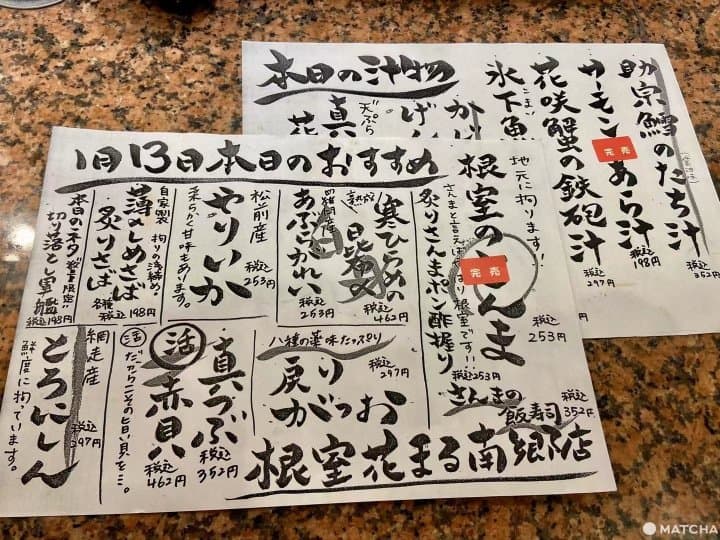 本日の汁物
助宗鱈のたち汁
税込352円
サーモンあら汁
完売
税込198円
花咲蟹の鉄砲汁
税込297円
氷下魚
こまい
天ぷら
真
花
1月13日本日のおすすめ
地元に拘ります!
根室のさんま
完売
税込253円
さんまと言えばやはり根室です!!
炙りさんまポン酢握り
税込253円
さんまの飯寿司
税込352円
寒ひらめの昆布〆
税込462円
あぶらがれい
税込253円
松前産
やりいか
税込253円
柔らかく甘味もあります。
自家製 拘りの浅締め。
薄〆しめさば
炙りさば
各種税込198円
本日のネタ 数量限定!!
切り落とし軍艦
税込198円
八種の薬味たっぷり
戻りがつお
税込297円
活真つぶ
税込352円
赤貝
税込462円
活だからこその旨い貝を…。
網走産
とろにしん
税込297円
鮮度に拘っています。
根室花まる南郷店
MATCHA